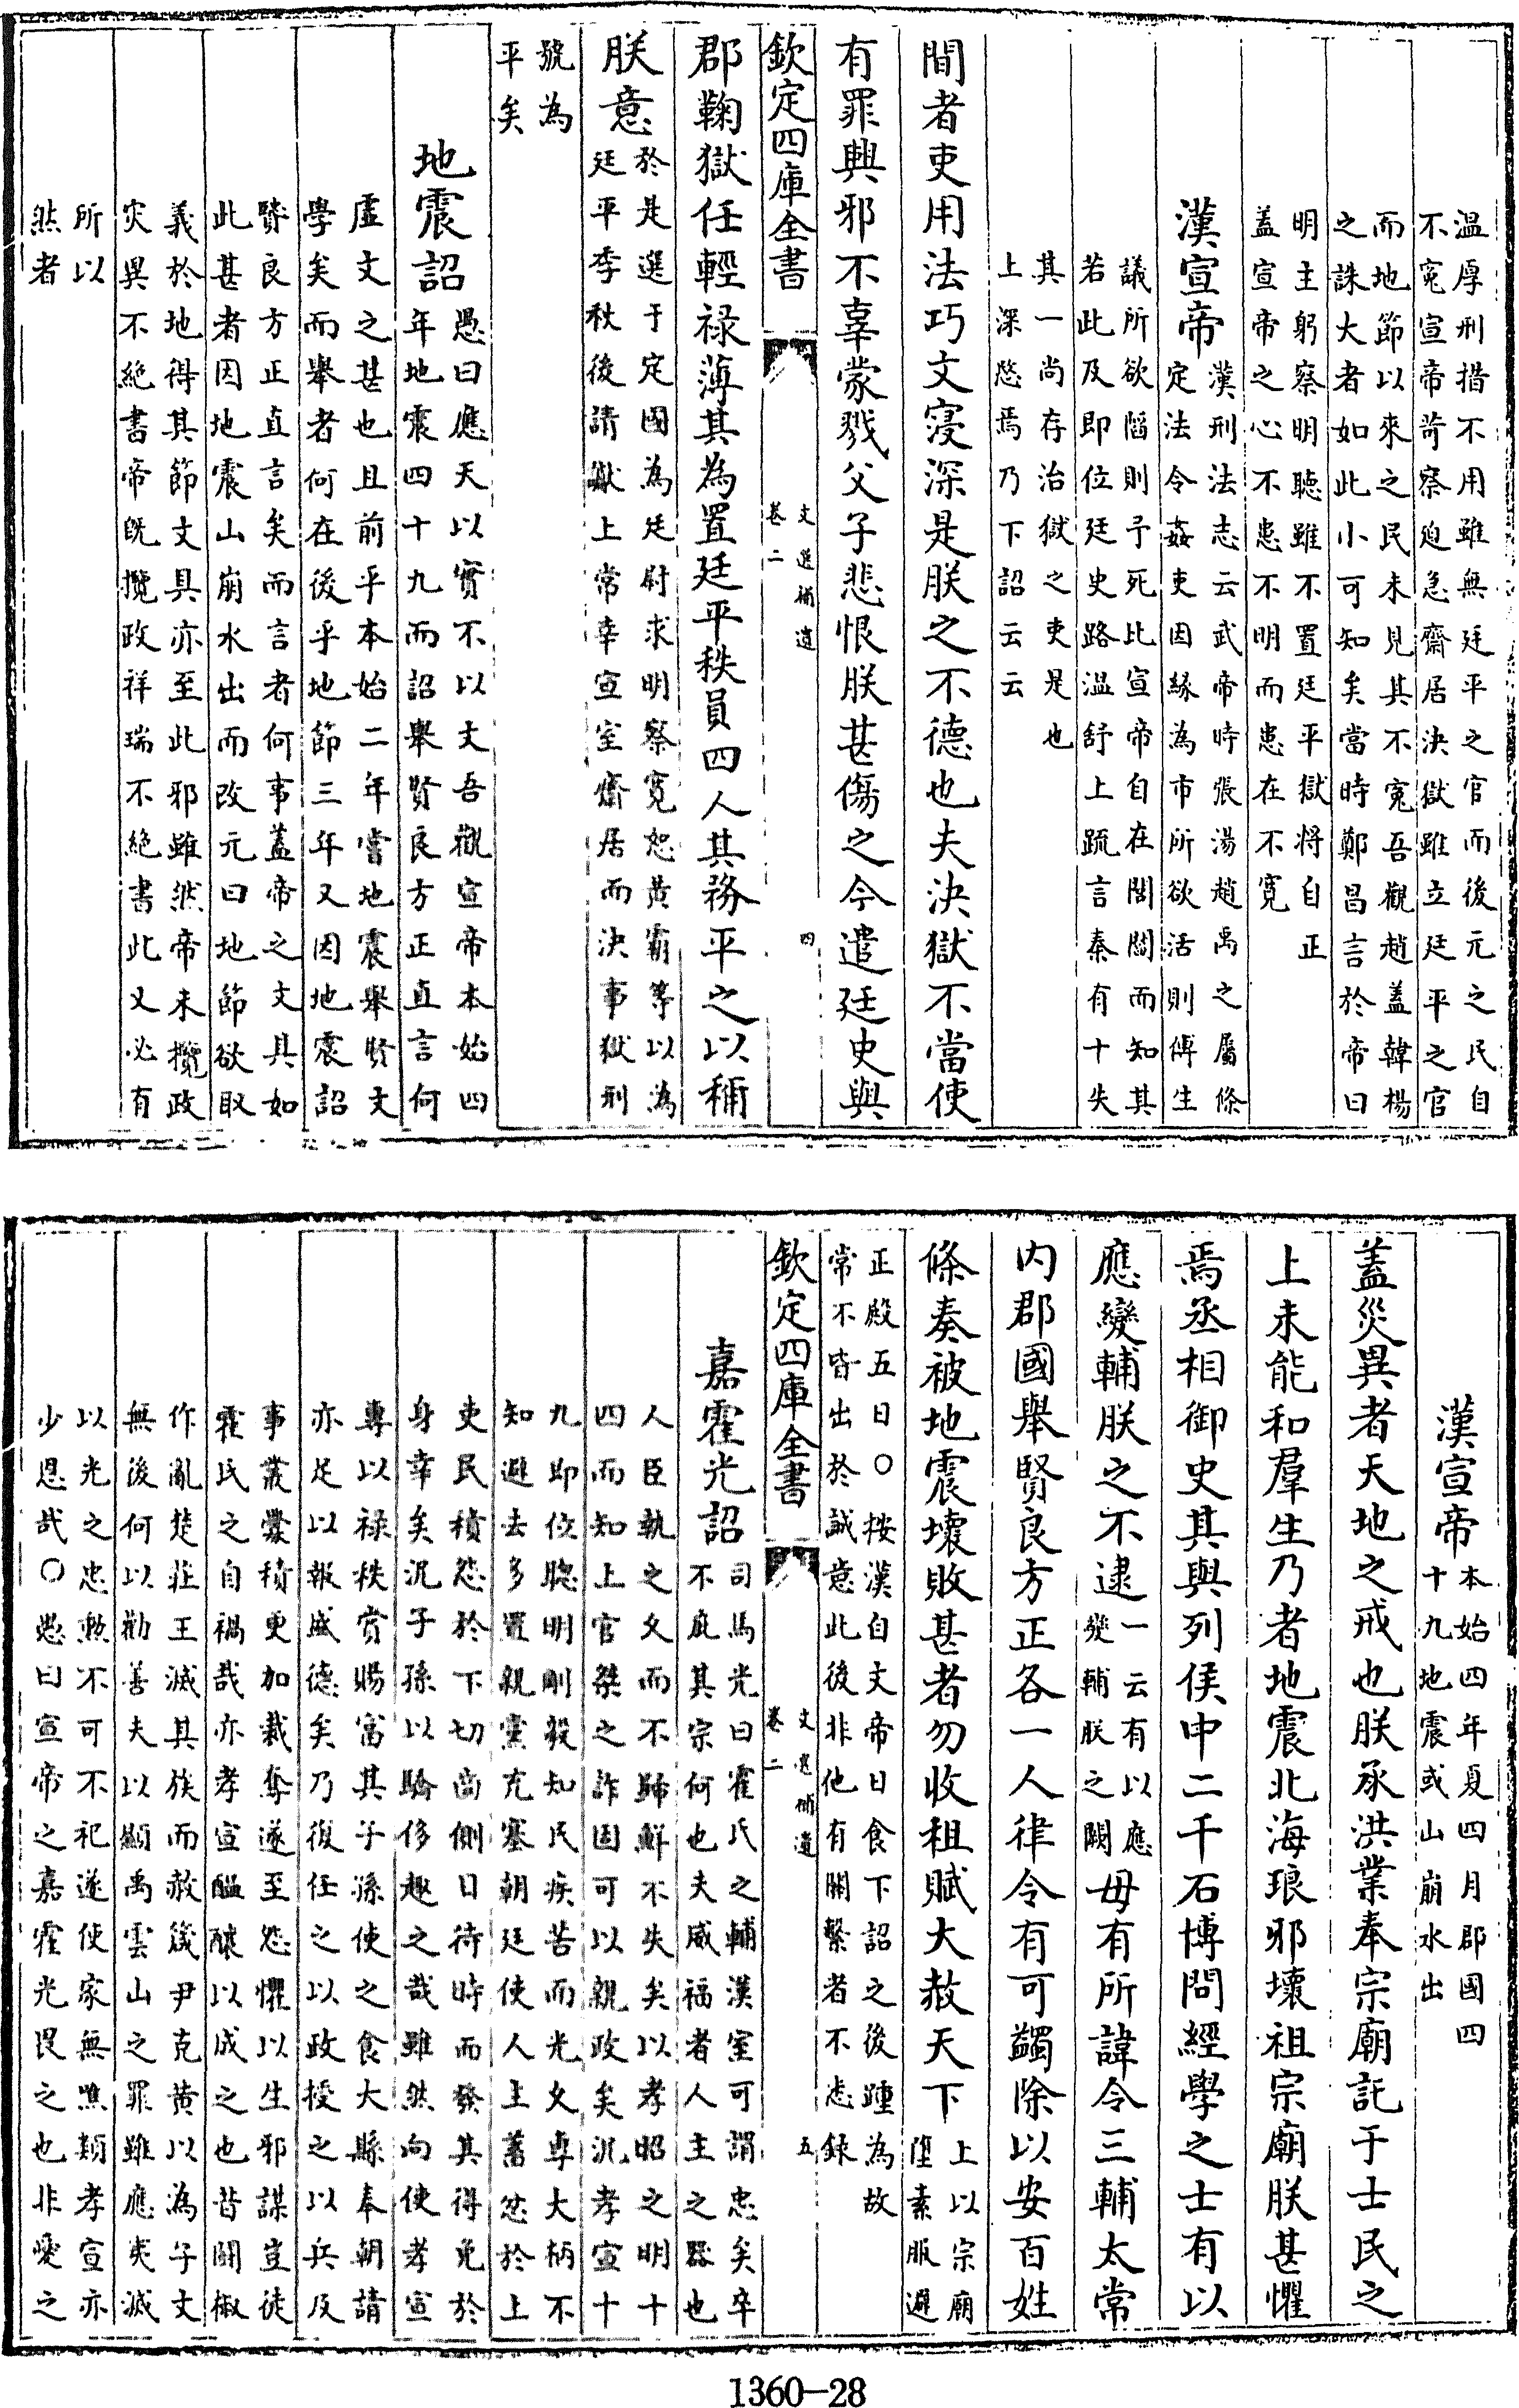 溫厚刑措不用雖無廷平之官而後元之民自
不寃宣帝苛察迫急齋居決獄雖立廷平之官
而地節以來之民未見其不寃吾觀趙蓋韓楊
之誅大者如此小可知矣當時鄭昌言於帝曰
明主躬察明聽雖不置廷平獄將自正
蓋宣帝之心不患不明而患在不寛
漢宣帝
漢刑法志云武帝時張湯趙禹之屬條
定法令姦吏因緣為市所欲活則傅生
議所欲陷則予死比宣帝自在閭閻而知其
若此及即位廷史路溫舒上疏言秦有十失
其一尚存治獄之吏是也
上深愍焉乃下詔云云
間者吏用法巧文寖深是朕之不德也夫決獄不當使
有罪興邪不辜蒙戮父子悲恨朕甚傷之今遣廷史與
欽定四庫全書
文選補遺
卷二
四
郡鞠獄任輕祿薄其為置廷平秩員四人其務平之以稱
朕意
於是選于定國為廷尉求明察寛恕黃霸等以為
廷平季秋後請讞上常幸宣室齋居而決事獄刑
號為
平矣
地震詔
愚曰應天以實不以文吾觀宣帝本始四
年地震四十九而詔舉賢良方正直言何
虛文之甚也且前乎本始二年嘗地震舉賢文
學矣而舉者何在後乎地節三年又因地震詔
賢良方正直言矣而言者何事蓋帝之文具如
此甚者因地震山崩水出而改元曰地節欲取
義於地得其節文具亦至此邪雖然帝未攬政
災異不絶書帝旣攬政祥瑞不絶書此又必有
所以
然者
漢宣帝
本始四年夏四月郡國四
十九地震或山崩水出
蓋災異者天地之戒也朕承洪業奉宗廟託于士民之
上未能和羣生乃者地震北海琅邪壞祖宗廟朕甚懼
焉丞相御史其與列侯中二千石博問經學之士有以
應變輔朕之不逮
一云有以應
變輔朕之闕
毋有所諱令三輔太常
內郡國舉賢良方正各一人律令有可蠲除以安百姓
條奏被地震壞敗甚者勿收租賦大赦天下
上以宗廟
墮素服避
正殿五日○按漢自文帝日食下詔之後踵為故
常不皆出於誠意此後非他有關繫者不悉錄
欽定四庫全書
文選補遺
卷二
五
嘉霍光詔
司馬光曰霍氏之輔漢室可謂忠矣卒
不庇其宗何也夫威福者人主之器也
人臣執之久而不歸鮮不失矣以孝昭之明十
四而知上官桀之詐固可以親政矣況孝宣十
九即位聰明剛毅知民疾苦而光久專大柄不
知避去多置親黨充塞朝廷使人主蓄忿於上
吏民積怨於下切齒側目待時而發其得免於
身幸矣況子孫以驕侈趣之哉雖然向使孝宣
專以祿秩賞賜富其子孫使之食大縣奉朝請
亦足以報盛德矣乃復任之以政授之以兵及
事叢釁積更加裁奪遂至怨懼以生邪謀豈徒
霍氏之自禍哉亦孝宣醞釀以成之也昔鬭椒
作亂楚莊王滅其族而赦箴尹克黃以為子文
無後何以勸善夫以顯禹雲山之罪雖應夷滅
以光之忠勲不可不祀遂使家無噍類孝宣亦
少恩哉○愚曰宣帝之嘉霍光畏之也非愛之
1360-28